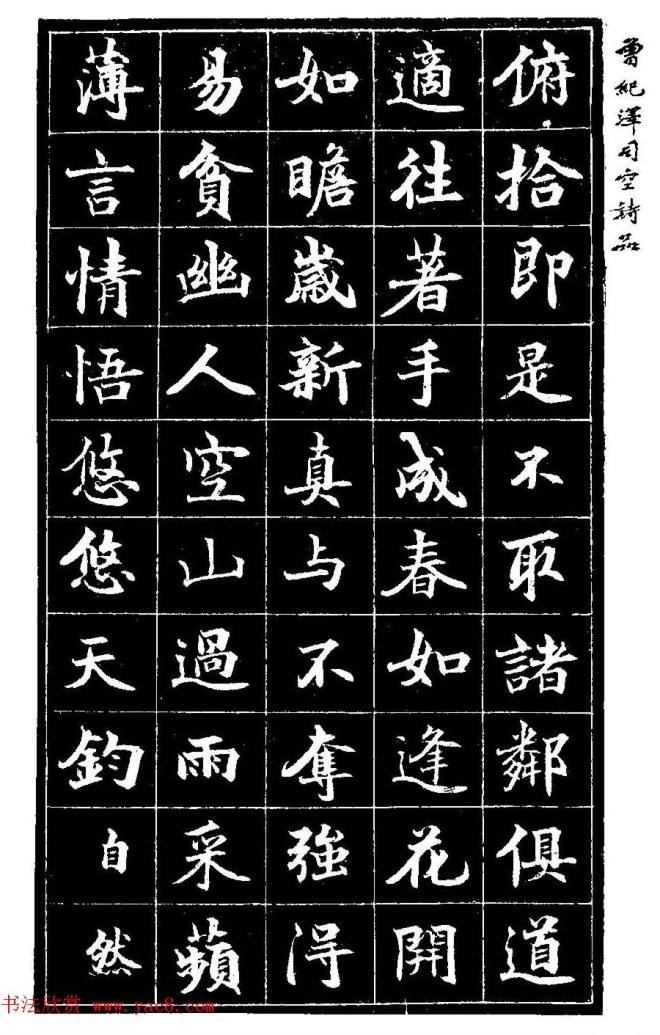 曾紀澤司空詩品
俯拾即是不取諸鄰俱道
適往著手成春如逢花開
如瞻嵗新真与不奪強得
易貧幽人空山過雨采蘋
薄言情悟悠悠天鈞
自然
书法欣赏 www.yac8.com